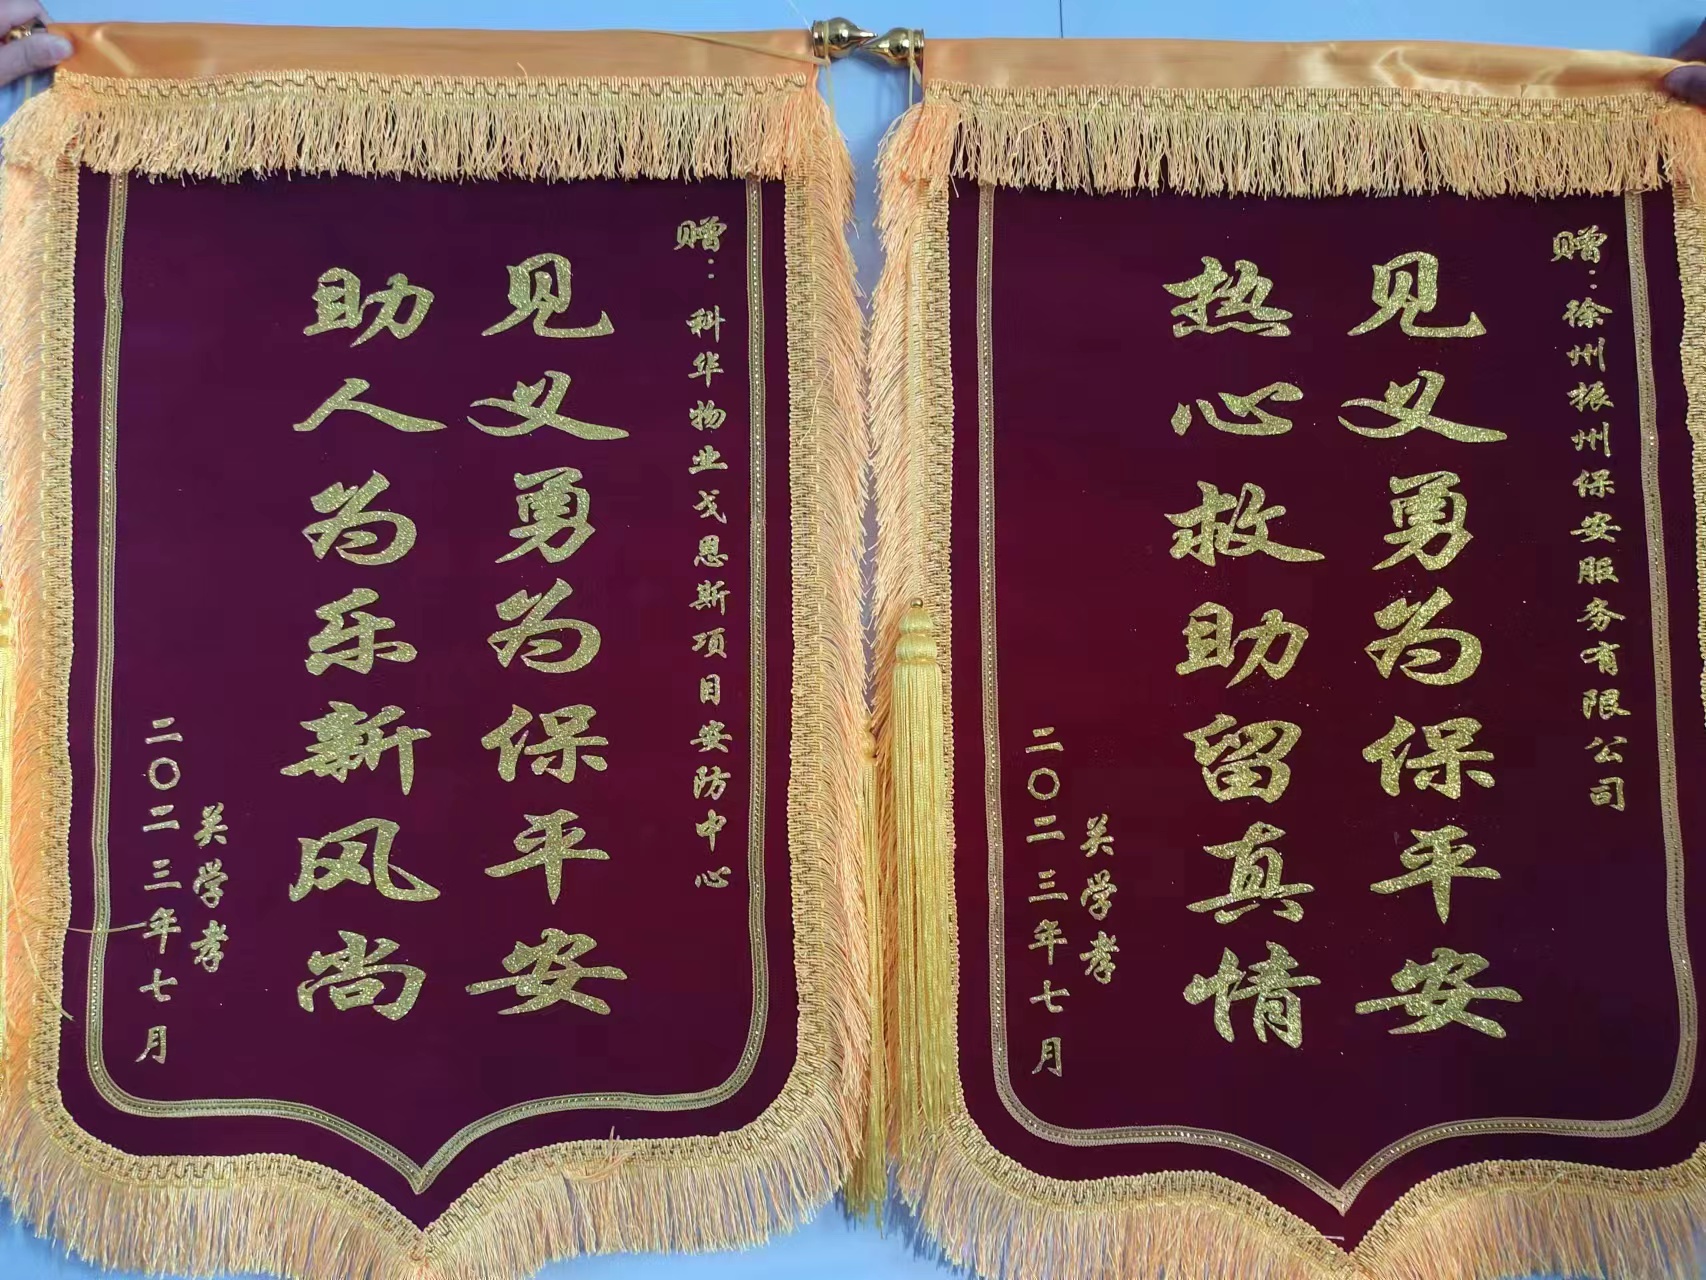 赠：科华物业戈恩斯项目安防中心
见义勇为保平安
助人为乐新风尚
吴学孝
二〇二三年七月
赠：徐州振州保安服务有限公司
见义勇为保平安
热心救助留真情
吴学孝
二〇二三年七月